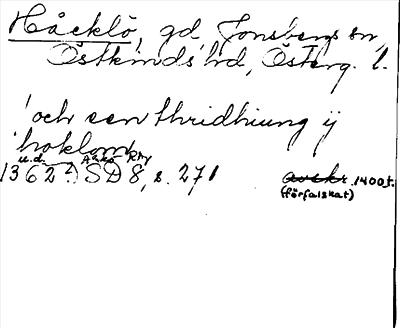 Håcklö, gd, Jonsbergs sn,
Östkinds hd, Österg. l.
och een thridhiung ÿ
hoklom
u.d. Aska RAp
1362 ?) SD 8, s. 271 avskr. 1400t.
(förfalskat)